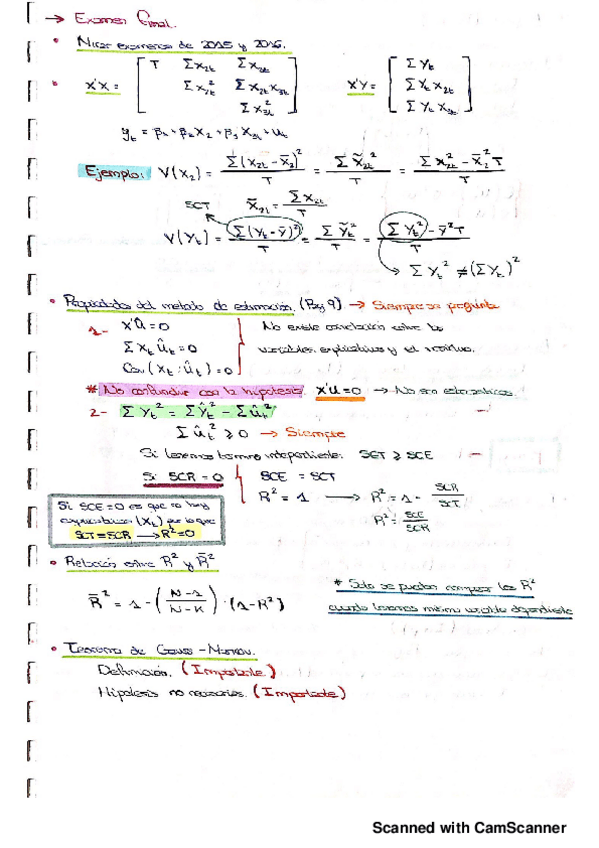 → Examen Final.
• Mirar examenes de 2015 y 2016.
• X'X = [ T Σx₂ₜ Σx₃ₜ
Σx₂ₜ² Σx₂ₜx₃ₜ
Σx₃ₜ² ]
X'Y = [ ΣYₜ
ΣYₜx₂ₜ
ΣYₜx₃ₜ ]
yₜ = β₁ + β₂x₂ + β₃x₃ₜ + uₜ
Ejemplo: V(x₂) = Σ(x₂ₜ - x̄₂)² / T = Σx̃₂ₜ² / T = Σx₂ₜ² - x̄₂²T / T
SCT x̄₂ₜ = Σx₂ₜ / T
V(Yₜ) = Σ(Yₜ - ȳ)² / T = ΣỸₜ² / T = ΣYₜ² - ȳ²T / T
→ ΣYₜ² ≠ (ΣYₜ)²
• Propiedades del metodo de estimación. (Pag 9) → Siempre se pregunta
1- X'Û = 0 No existe correlación entre las
Σxₜûₜ = 0 variables explicativas y el residuo.
Cov(xₜ; ûₜ) = 0
* No confundir con la hipotesis X'U = 0 → No son estocasticos.
2- ΣYₜ² = ΣŶₜ² - Σûₜ²
Σûₜ² ⩾ 0 → Siempre
Si tenemos termino independiente: SCT ⩾ SCE
Si SCR = 0 SCE = SCT
R² = 1 → R² = 1 - SCR / SCT
R² = SCE / SCR
Si SCE = 0 es que no hay
explicativas (Xₜ) por lo que
SCT = SCR → R² = 0
• Relación entre R² y R̄²
R̄² = 1 - (N-1 / N-K) · (1-R²)
* Solo se pueden comparar los R²
cuando tenemos misma variable dependiente
• Teorema de Gauss-Markov.
Definición. (Importante)
Hipotesis no necesarias. (Importante)
Scanned with CamScanner